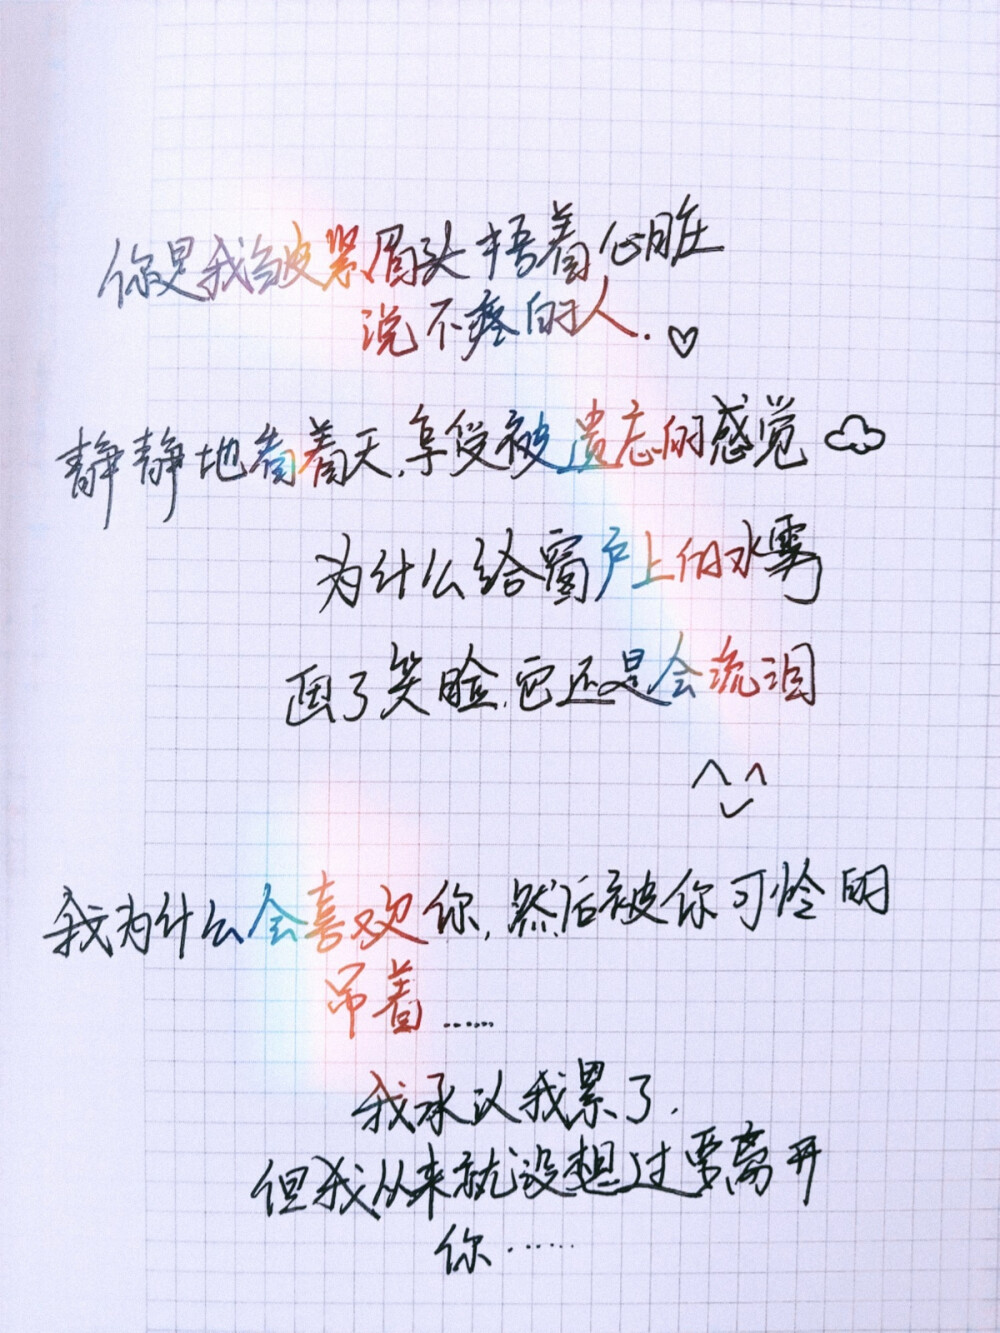 你是我皱紧眉头捂着心脏
说不疼的人.
静静地看着天,享受被遗忘的感觉
为什么给窗户上的水雾
画了笑脸,它还是会流泪
我为什么会喜欢你,然后被你可怜的
吊着……
我承认我累了.
但我从来就没想过要离开
你……